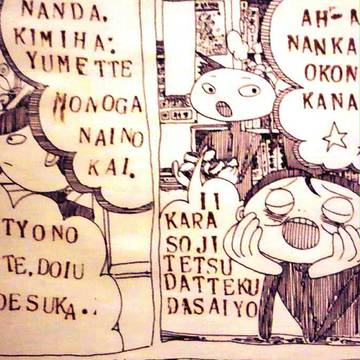 NANDA.
KIMIHA:
YUMETTE
MONOGA
NAINO
KAI.
TYONO
TE,DOIU
DESUKA..
AH-
NANKA
OKON
KANA
II
KARA
SOJI
TETSU
DATTEKU
DASAIYO